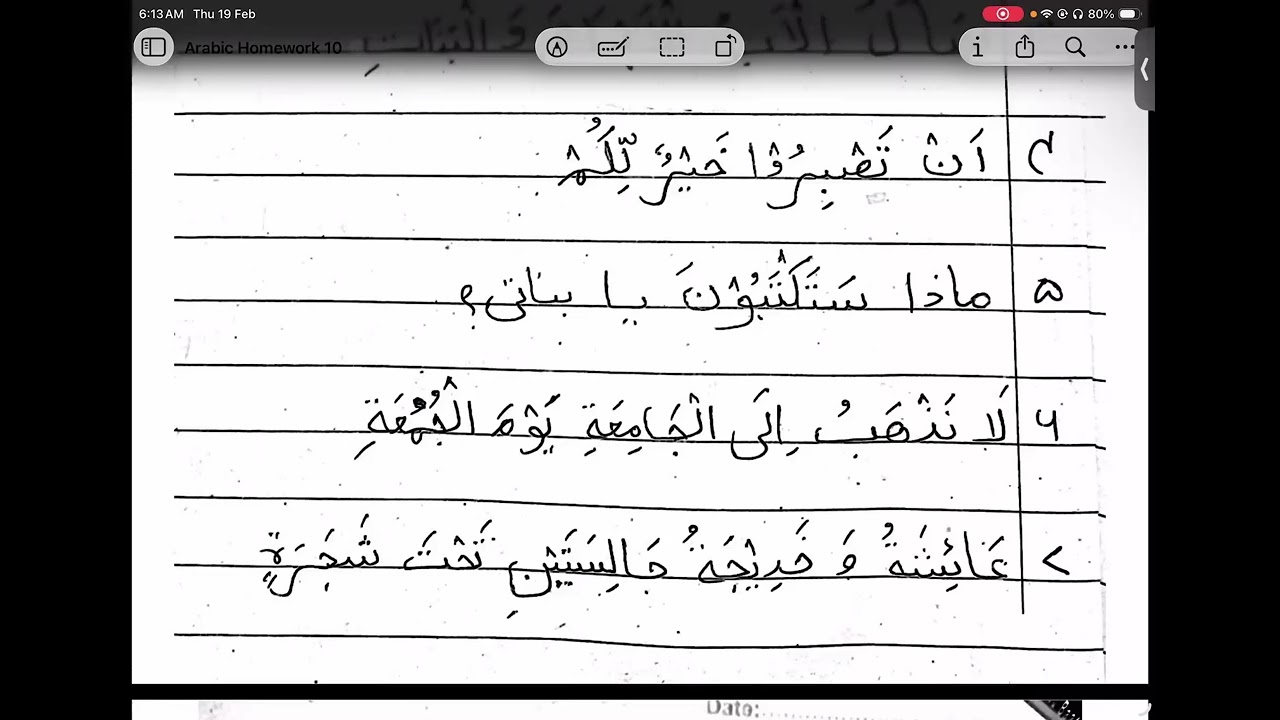 6:13 AM Thu 19 Feb
80%
Arabic Homework 10
۴ اَنْ تَصْبِرُوْا خَيْرٌ لِّكَُمْ
۵ ماذا سَتَكْتَبُوْنَ يا بناتى؟
۶ لَا نَذْهَبُ اِلَى الْجَامِعَةِ يَوْمَ الْجُمُعَةِ
۷ عَائِشَةُ وَ خَدِيْجَةُ جَالِسَتَيْنِ تَحْتَ شَجَرَةٍ
Date: